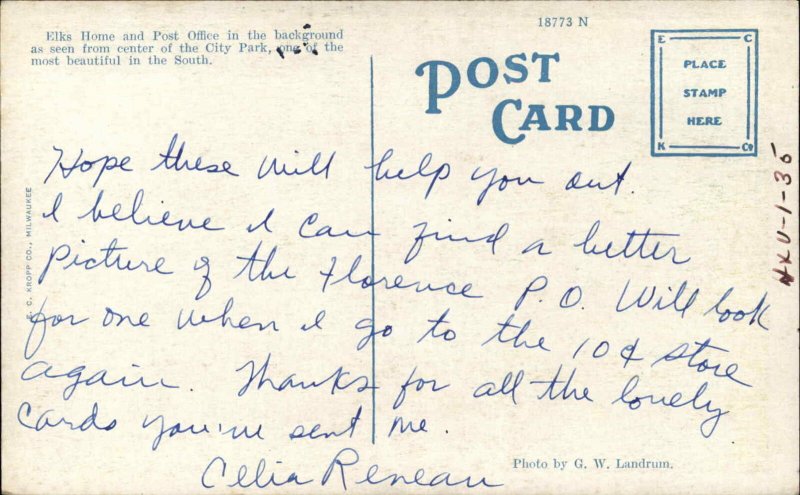 Elks Home and Post Office in the background
as seen from center of the City Park, one of the
most beautiful in the South.
18773 N
POST
CARD
E C
PLACE
STAMP
HERE
K Co
E. C. KROPP CO., MILWAUKEE
Hope these will help you out.
I believe I can find a better
picture of the Florence P.O. Will look
for one when I go to the 10¢ store
again. Thanks for all the lovely
cards you've sent me.
Celia Reneau
Photo by G. W. Landrum.